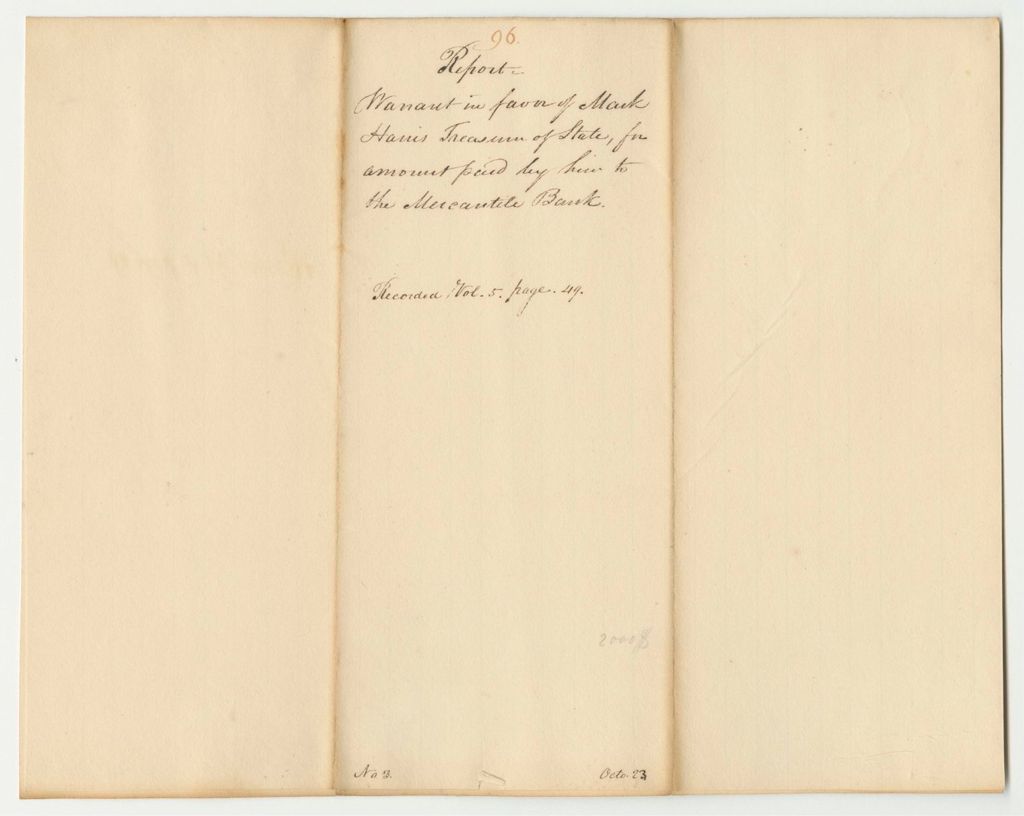 96.
Report-
Warrant in favor of Mark
Harris Treasurer of State, for
amount paid by him to
the Mercantile Bank.
Recorded Vol. 5. page. 49.
2000$
No 3.
Octo. 23